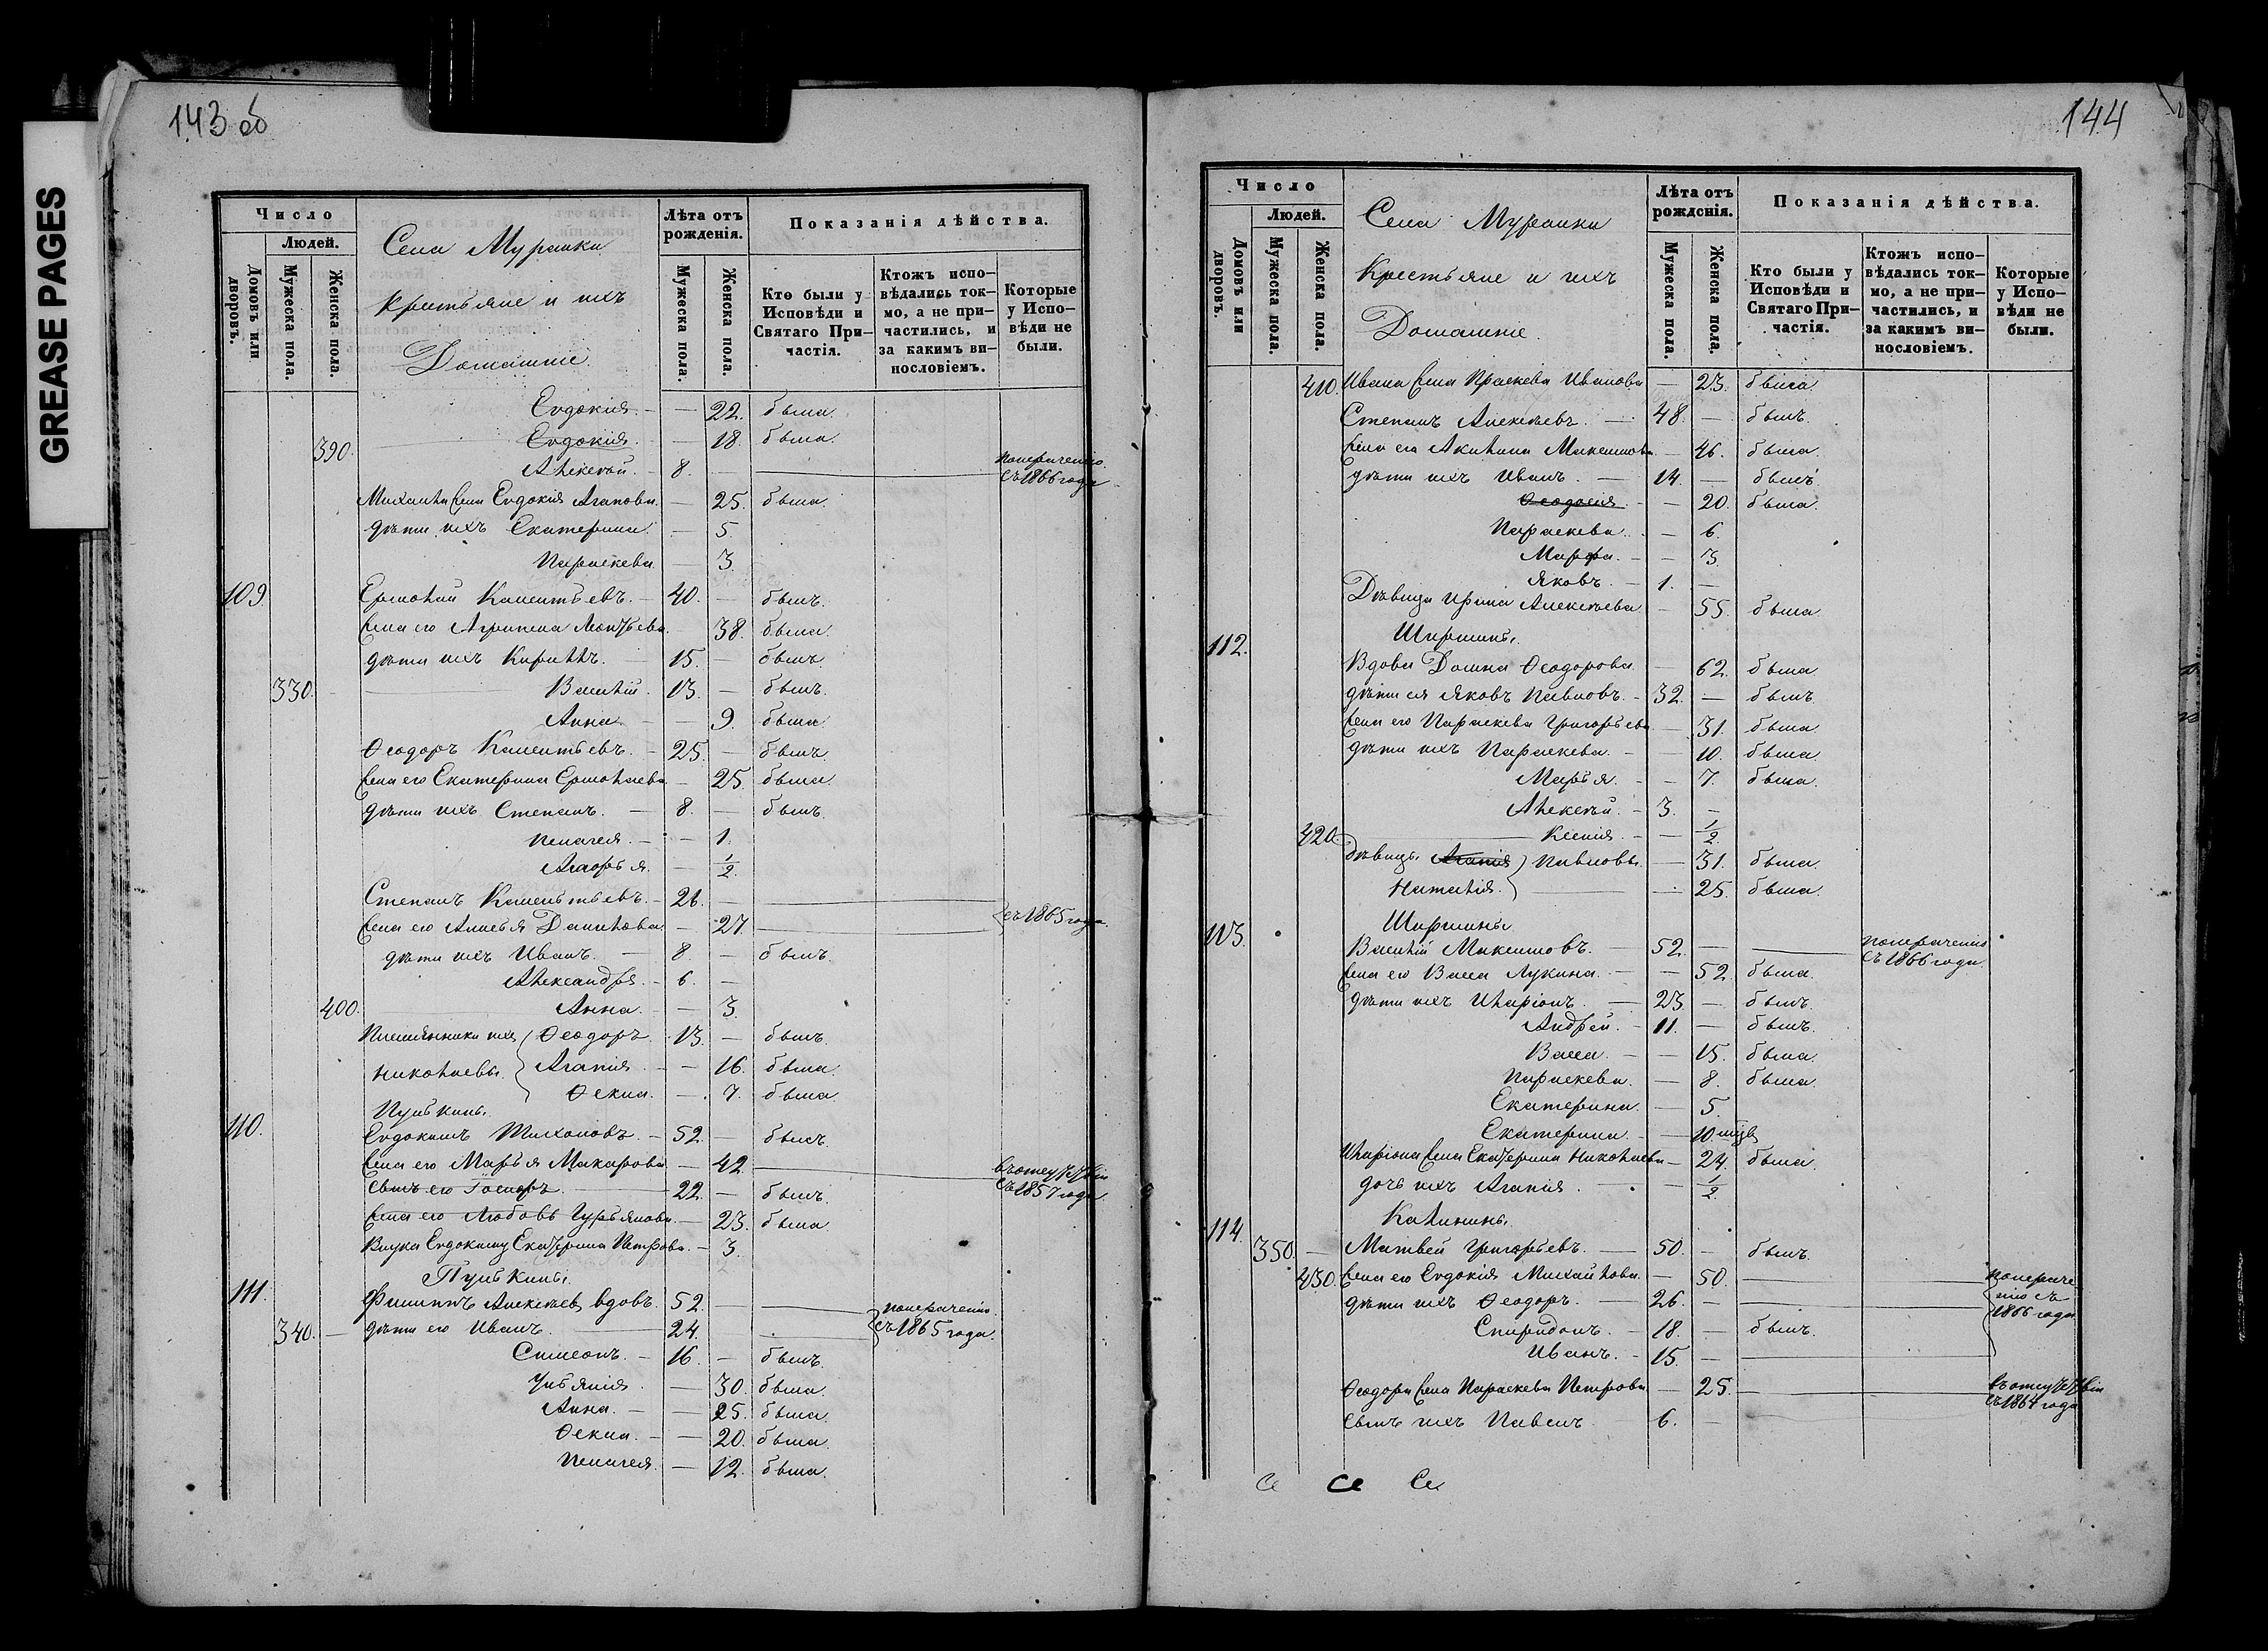 GREASE PAGES
143 об
Число
Людей.
Домовъ или дворовъ.
Мужеска пола.
Женска пола.
Села Муранки
Крестьяне и ихъ
Домашніе.
Лѣта отъ рожденія.
Мужеска пола.
Женска пола.
Показанія дѣйства.
Кто были у Исповѣди и Святаго При-частія.
Ктожъ испо-вѣдались ток-мо, а не при-частились, и за какимъ ви-нословіемъ.
Которые у Испо-вѣди не были.
Евдокія. — — 22. была.
390. Евдокія. — 18. была.
Алексѣй. — 8. —
съ 1866 года
Михаила жена Евдокія Агапова. — 25. была.
дѣти ихъ Екатерина. — 5.
Параскева — 3.
109. Ермолай Калентьевъ. — 40. — былъ.
жена его Агрипена Леонтьева. 38. была.
дѣти ихъ Кириллъ. — 15. — былъ.
330. Василій. 13. — былъ.
Анна. — — 9. была
Ѳеодоръ Калентьевъ. — 25. — былъ.
жена его Екатерина Ермолаева — 25. была.
дѣти ихъ Степанъ. — 8. — былъ.
Пелагея. — — 1.
Агафья. — 1/2.
Степанъ Калентьевъ. — 26. —
жена его Анисья Данилова. — 27.
съ 1865 года.
дѣти ихъ Иванъ. — 8. — былъ.
Александръ. — 6. —
400. Анна. — — 3.
Племянники ихъ Ѳеодоръ 13. — былъ.
Николаевы. Агапія. — — 16. была.
Ѳекла. — 7. была.
Пулькины.
110. Евдокимъ Тихоновъ. — 52. — былъ.
жена его Марья Макарова — 42.
въ отсутствіи
съ 1857 года.
сынъ его — 22. — былъ.
жена его Любовь Гурьянова. — 23. была
Внука Евдокиму Екатерина Петрова. — 3.
Пулькины.
111. Филиппъ Алексѣевъ вдовъ. 52. —
съ 1865 года.
340. — дѣти его Иванъ. 24.
Симеонъ. — 16. — былъ.
Ульянія. — 30. была.
Анна. — — 25. была.
Ѳекла. — — 20. была.
Пелагея. — 12. была.
144
Число
Людей.
Домовъ или дворовъ.
Мужеска пола.
Женска пола.
Села Муранки
Крестьяне и ихъ
Домашніе.
Лѣта отъ рожденія.
Мужеска пола.
Женска пола.
Показанія дѣйства.
Кто были у Исповѣди и Святаго При-частія.
Ктожъ испо-вѣдались ток-мо, а не при-частились, и за какимъ ви-нословіемъ.
Которые у Испо-вѣди не были.
410. Ивана жена Праскева Иванова — 23. была.
Степанъ Алексѣевъ. — 48. — былъ.
жена его Акилина Максимова. — 46. была.
дѣти ихъ Иванъ. — 14. — былъ.
Ѳеодосія — — 20. была.
Параскева. — 6.
Марфа. — — 3.
Яковъ. — 1. —
Дѣвица Ирина Алексѣева — 55. была.
112. Ширшины.
Вдова Домна Ѳеодорова. — 62. была
дѣти ея Яковъ Павловъ. — 32. — былъ.
жена его Параскева Григорьева — 31. была.
дѣти ихъ Параскева. — — 10. была.
Марья. — — 7. была.
Алексѣй. — 3. —
420. Ксенія. — — 1/2.
Дѣвицы Агапія Павловы. — 31. была.
Наталія. 25. была.
113. Ширшины.
Василій Максимовъ. — 52. —
съ 1866 года.
жена его Васса Лукина. — — 52. была.
дѣти ихъ Иларіонъ. — 23. — былъ.
Андрей. — 11. — былъ.
Васса. — — 15. была.
Параскева. — 8. была.
Екатерина. — 5.
Екатерина. — 10
Иларіона жена Екатерина Николаева — 24. была.
дочь ихъ Агапія. — 1/2.
Калинины.
114. 350. — Матвей Григорьевъ. — 50. — былъ.
430. жена его Евдокія Михайлова. — 50.
съ
1866 года
дѣти ихъ Ѳеодоръ. — 26. —
Спиридонъ. — 18. — былъ.
Иванъ. — 15. —
Ѳеодора жена Параскева Петрова — 25.
въ отсутствіи
съ 1864 года
сынъ ихъ Павелъ. 6. —